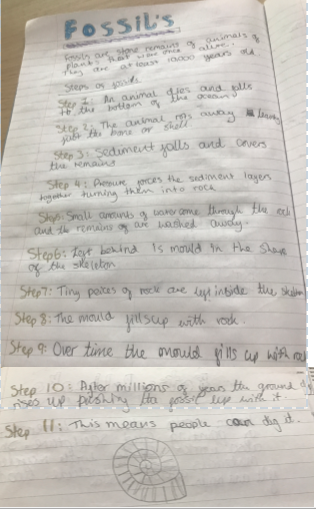 Fossil's
Fossils are stone remains of animals of
plants that were once alive.
They are at least 10000 years old
Steps of fossils
Step 1: An animal dies and falls
to the bottom of the ocean
Step 2: The animal rots away leaving
just the bone or shell
Step 3: Sediment falls and covers
the remains
Step 4: Pressure forces the sediment layers
together turning them into rock
Step5: Small amounts of water come through the rock
and the remains of are washed away.
Step6: Left behind is mould in the shape
of the skeleton
Step7: Tiny peices of rock are left inside the skeleton
Step 8: The mould fills up with rock.
Step 9: Over time the mould fills up with rock
Step 10: After millions of year the ground
rises up pushing the fossil up with it.
Step 11: This means people can dig it.